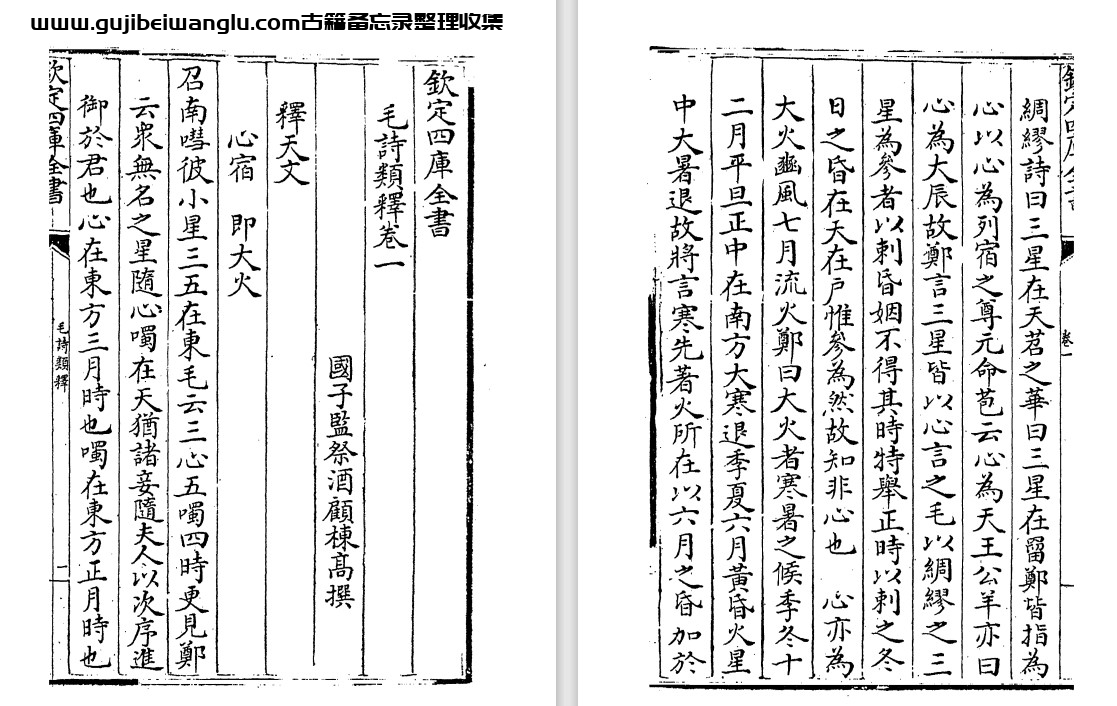 www.gujibeiwanglu.com古籍备忘录整理收集
欽定四庫全書
毛詩類釋卷一
國子監祭酒顧棟高撰
釋天文
心宿　即大火
召南嘒彼小星三五在東毛云三心五噣四時更見鄭
云衆無名之星隨心噣在天猶諸妾隨夫人以次序進
御於君也心在東方三月時也噣在東方正月時也
欽定四庫全書
毛詩類釋
一
欽定四庫全書
卷一
綢繆詩曰三星在天苕之華曰三星在罶鄭皆指為
心以心為列宿之尊元命苞云心為天王公羊亦曰
心為大辰故鄭言三星皆以心言之毛以綢繆之三
星為參者以刺昏姻不得其時特舉正時以刺之冬
日之昏在天在戶惟參為然故知非心也　心亦為
大火豳風七月流火鄭曰大火者寒暑之候季冬十
二月平旦正中在南方大寒退季夏六月黃昏火星
中大暑退故將言寒先著火所在以六月之昏加於